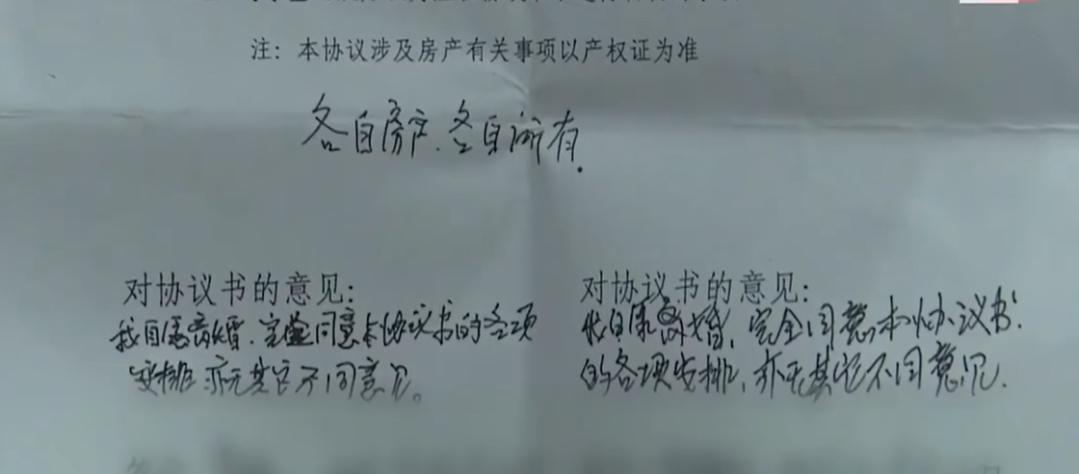 注：本协议涉及房产有关事项以产权证为准
各自房产、各自所有.
对协议书的意见：
我自愿离婚.完全同意本协议书的各项
安排亦无其它不同意见。
对协议书的意见：
我自愿离婚，完全同意本协议书
的各项安排，亦无其它不同意见.